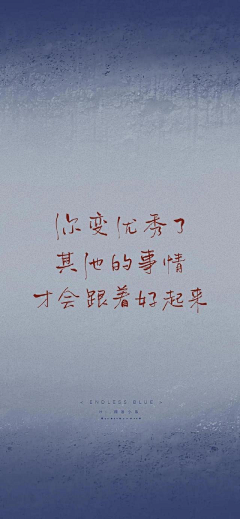 你变优秀了
其他的事情
才会跟着好起来
ENDLESS BLUE